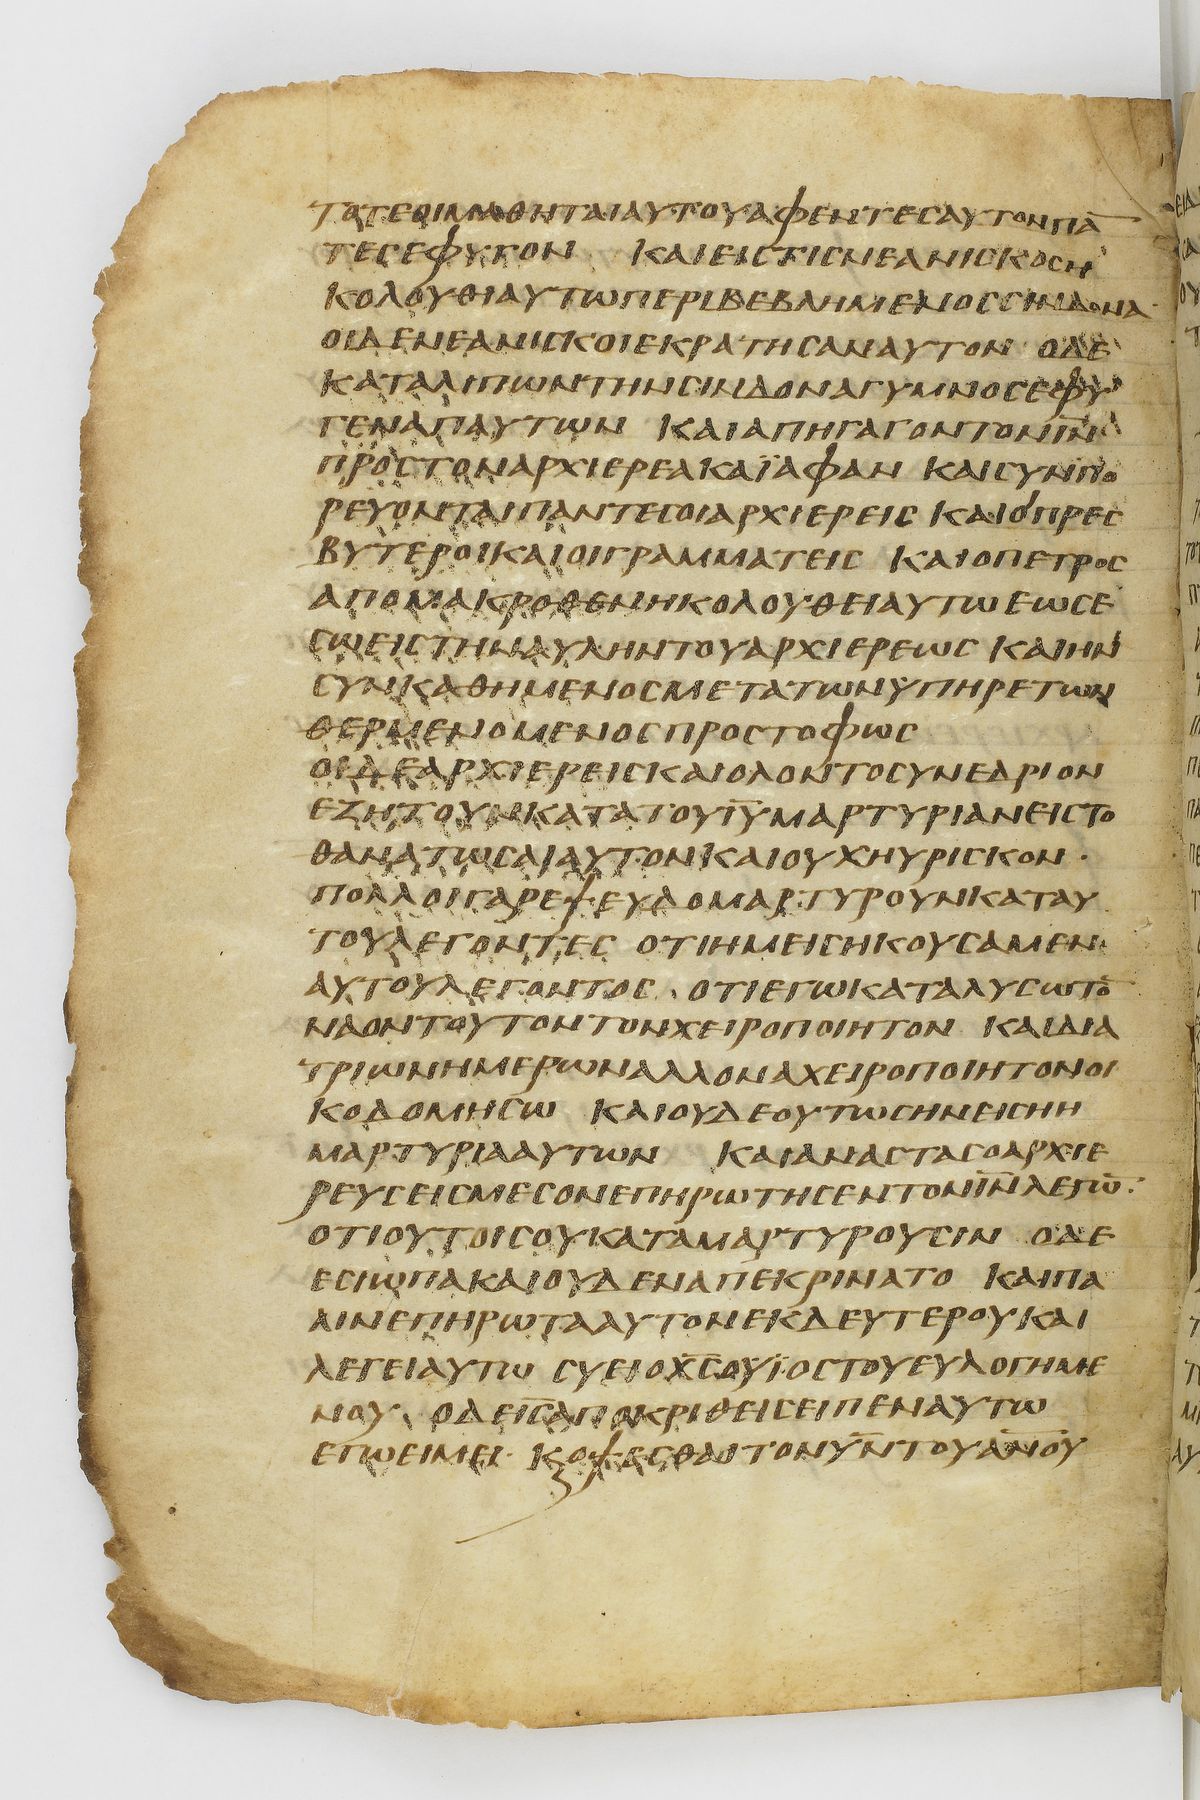 ΤΟΤΕΟΙΜΑΘΗΤΑΙΑΥΤΟΥΑΦΕΝΤΕϹΑΥΤΟΝΠΑ̅
ΤΕϹΕΦΥΓΟΝ ΚΑΙΕΙϹΤΙϹΝΕΑΝΙϹΚΟϹΗ
ΚΟΛΟΥΘΙΑΥΤΩΠΕΡΙΒΕΒΛΗΜΕΝΟϹϹΙΝΔΟΝΑ·
ΟΙΔΕΝΕΑΝΙϹΚΟΙΕΚΡΑΤΗϹΑΝΑΥΤΟΝ ΟΔΕ
ΚΑΤΑΛΙΠΩΝΤΗΝϹΙΝΔΟΝΑΓΥΜΝΟϹΕΦΥ
ΓΕΝΑΠΑΥΤΩΝ ΚΑΙΑΠΗΓΑΓΟΝΤΟΝΙ̅Ν̅
ΠΡΟϹΤΟΝΑΡΧΙΕΡΕΑΚΑΪΑΦΑΝ ΚΑΙϹΥΝΠΟ
ΡΕΥΟΝΤΑΙΠΑΝΤΕϹΟΙΑΡΧΙΕΡΕΙϹ ΚΑΙΟΙΠΡΕϹ
ΒΥΤΕΡΟΙΚΑΙΟΙΓΡΑΜΜΑΤΕΙϹ ΚΑΙΟΠΕΤΡΟϹ
ΑΠΟΜΑΚΡΟΘΕΝΗΚΟΛΟΥΘΕΙΑΥΤΩΕΩϹΕ
ϹΩΕΙϹΤΗΝΑΥΛΗΝΤΟΥΑΡΧΙΕΡΕΩϹ ΚΑΙΗΝ
ϹΥΝΚΑΘΗΜΕΝΟϹΜΕΤΑΤΩΝΥΠΗΡΕΤΩΝ
ΘΕΡΜΕΝΟΜΕΝΟϹΠΡΟϹΤΟΦΩϹ
ΟΙΔΕΑΡΧΙΕΡΕΙϹΚΑΙΟΛΟΝΤΟϹΥΝΕΔΡΙΟΝ
ΕΖΗΤΟΥΝΚΑΤΑΤΟΥΙ̅Υ̅ΜΑΡΤΥΡΙΑΝΕΙϹΤΟ
ΘΑΝΑΤΩϹΑΙΑΥΤΟΝΚΑΙΟΥΧΗΥΡΙϹΚΟΝ·
ΠΟΛΛΟΙΓΑΡΕΨΕΥΔΟΜΑΡΤΥΡΟΥΝΚΑΤΑΥ
ΤΟΥΛΕΓΟΝΤΕϹ ΟΤΙΗΜΕΙϹΗΚΟΥϹΑΜΕΝ
ΑΥΤΟΥΛΕΓΟΝΤΟϹ ΟΤΙΕΓΩΚΑΤΑΛΥϹΩΤΟ̅
ΝΑΟΝΤΟΥΤΟΝΤΟΝΧΕΙΡΟΠΟΙΗΤΟΝ ΚΑΙΔΙΑ
ΤΡΙΩΝΗΜΕΡΩΝΑΛΛΟΝΑΧΕΙΡΟΠΟΙΗΤΟΝΟΙ
ΚΟΔΟΜΗϹΩ ΚΑΙΟΥΔΕΟΥΤΩϹΗΝΕΙϹΗΗ
ΜΑΡΤΥΡΙΑΑΥΤΩΝ ΚΑΙΑΝΑϹΤΑϹΟΑΡΧΙΕ
ΡΕΥϹΕΙϹΜΕϹΟΝΕΠΗΡΩΤΗϹΕΝΤΟΝΙ̅Ν̅ΛΕΓΩ̅·
ΟΤΙΟΥΤΟΙϹΟΥΚΑΤΑΜΑΡΤΥΡΟΥϹΙΝ ΟΔΕ
ΕϹΙΩΠΑΚΑΙΟΥΔΕΝΑΠΕΚΡΙΝΑΤΟ ΚΑΙΠΑ
ΛΙΝΕΠΗΡΩΤΑΑΥΤΟΝΕΚΔΕΥΤΕΡΟΥΚΑΙ
ΛΕΓΕΙΑΥΤΩ ϹΥΕΙΟΧ̅Ϲ̅ΟΥΪΟϹΤΟΥΕΥΛΟΓΗΜΕ
ΝΟΥ ΟΔΕΙ̅Ϲ̅ΑΠΟΚΡΙΘΕΙϹΕΙΠΕΝΑΥΤΩ
ΕΓΩΕΙΜΕΙ· ΚΟΨΕϹΘΑΙΤΟΝΥ̅Ν̅ΤΟΥΑ̅Ν̅Ο̅Υ̅